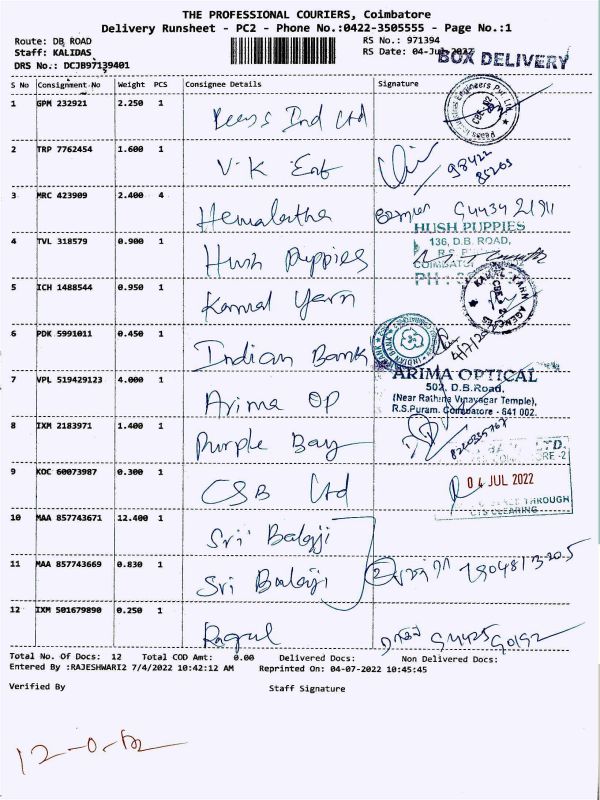 THE PROFESSIONAL COURIERS, Coimbatore
Delivery Runsheet - PC2 - Phone No.:0422-3505555 - Page No.:1
Route: DB ROAD RS No.: 971394
Staff: KALIDAS RS Date: 04-Jul-2022 BOX DELIVERY
DRS No.: DCJB97139401
S No Consignment No Weight PCS Consignee Details Signature
1 GPM 232921 2.250 1 Peass Ind Ltd
2 TRP 7762454 1.600 1 V.K Ent 98422
85203
3 MRC 423909 2.400 4 Hemalatha 94434 21911
HUSH PUPPIES
136, D.B. ROAD,
4 TVL 318579 0.900 1 Hush Puppies
COIMBATORE
PH :
5 ICH 1488544 0.950 1 Kamal Yarn
6 PDK 5991011 0.450 1 Indian Bank 4/7/22
ARIMA OPTICAL
502, D.B.Road,
7 VPL 519429123 4.000 1 Arima OP
(Near Rathna Vinayagar Temple),
R.S.Puram, Coimbatore - 641 002.
8 IXM 2183971 1.400 1 Purple Bay
9 KOC 60073987 0.300 1 CSB Ltd
04 JUL 2022
THROUGH
CTS CLEARING
10 MAA 857743671 12.400 1 Sri Balaji
11 MAA 857743669 0.830 1 Sri Balaji
12 IXM 501679890 0.250 1 Ragul 94425 90192
Total No. Of Docs: 12 Total COD Amt: 0.00 Delivered Docs: Non Delivered Docs:
Entered By :RAJESHWARI2 7/4/2022 10:42:12 AM Reprinted On: 04-07-2022 10:45:45
Verified By Staff Signature
12-0-12